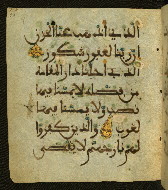 الذى أذهب عنا الحزن
إن ربنا لغفور شكور
الذى أحلنا دار المقامة
من فضله لا يمسنا فيها
نصب ولا يمسنا فيها
لغوب والذين كفروا
لهم نار جهنم لا يقضى